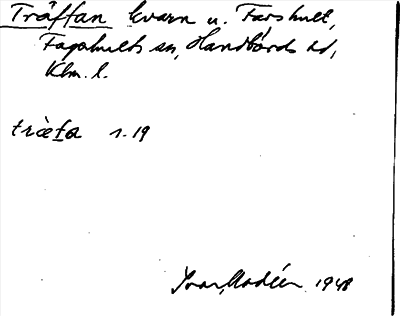 Träffan kvarn u. Farshult,
Fagerhults sn, Handbörds hd,
Klm. l.
træfa 1.19
Ivar Modéer 1948